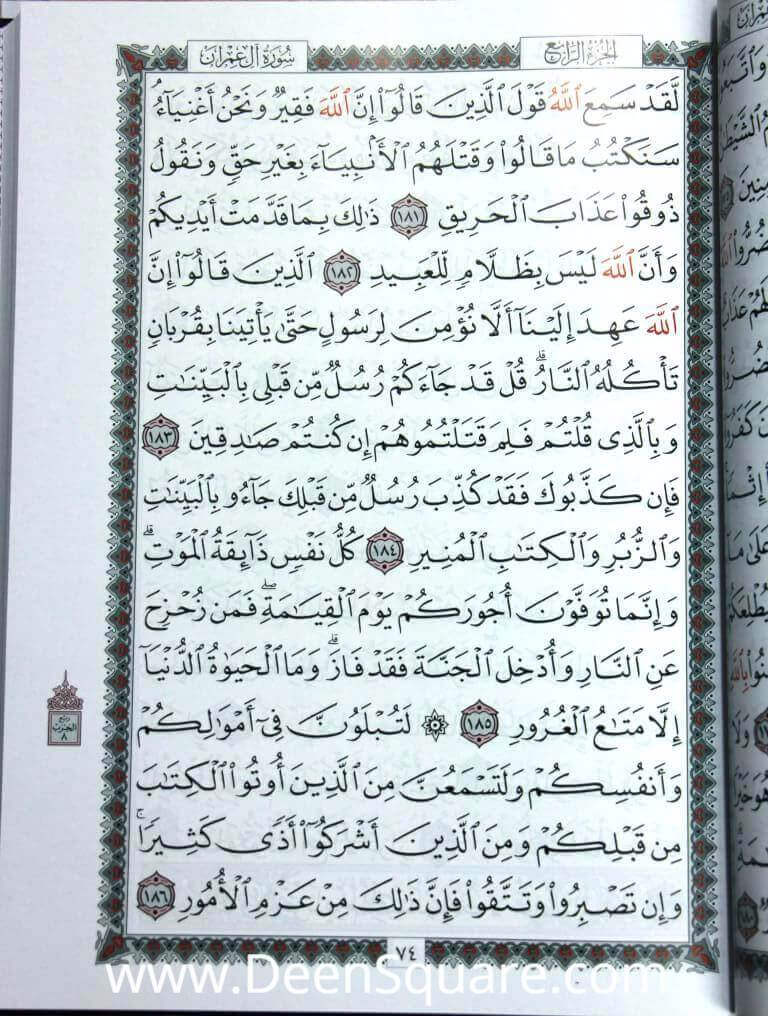 الجزء الرابع
سورة آل عمران
لَّقَدْ سَمِعَ ٱللَّهُ قَوْلَ ٱلَّذِينَ قَالُوٓا۟ إِنَّ ٱللَّهَ فَقِيرٌ وَنَحْنُ أَغْنِيَآءُ
سَنَكْتُبُ مَا قَالُوا۟ وَقَتْلَهُمُ ٱلْأَنۢبِيَآءَ بِغَيْرِ حَقٍّ وَنَقُولُ
ذُوقُوا۟ عَذَابَ ٱلْحَرِيقِ ١٨١ ذَٰلِكَ بِمَا قَدَّمَتْ أَيْدِيكُمْ
وَأَنَّ ٱللَّهَ لَيْسَ بِظَلَّامٍ لِّلْعَبِيدِ ١٨٢ ٱلَّذِينَ قَالُوٓا۟ إِنَّ
ٱللَّهَ عَهِدَ إِلَيْنَآ أَلَّا نُؤْمِنَ لِرَسُولٍ حَتَّىٰ يَأْتِيَنَا بِقُرْبَانٍ
تَأْكُلُهُ ٱلنَّارُ ۗ قُلْ قَدْ جَآءَكُمْ رُسُلٌ مِّن قَبْلِى بِٱلْبَيِّنَٰتِ
وَبِٱلَّذِى قُلْتُمْ فَلِمَ قَتَلْتُمُوهُمْ إِن كُنتُمْ صَٰدِقِينَ ١٨٣
فَإِن كَذَّبُوكَ فَقَدْ كُذِّبَ رُسُلٌ مِّن قَبْلِكَ جَآءُو بِٱلْبَيِّنَٰتِ
وَٱلزُّبُرِ وَٱلْكِتَٰبِ ٱلْمُنِيرِ ١٨٤ كُلُّ نَفْسٍ ذَآئِقَةُ ٱلْمَوْتِ ۗ
وَإِنَّمَا تُوَفَّوْنَ أُجُورَكُمْ يَوْمَ ٱلْقِيَٰمَةِ ۖ فَمَن زُحْزِحَ
عَنِ ٱلنَّارِ وَأُدْخِلَ ٱلْجَنَّةَ فَقَدْ فَازَ ۗ وَمَا ٱلْحَيَوٰةُ ٱلدُّنْيَآ
إِلَّا مَتَٰعُ ٱلْغُرُورِ ١٨٥ ۞ لَتُبْلَوُنَّ فِىٓ أَمْوَٰلِكُمْ
وَأَنفُسِكُمْ وَلَتَسْمَعُنَّ مِنَ ٱلَّذِينَ أُوتُوا۟ ٱلْكِتَٰبَ
مِن قَبْلِكُمْ وَمِنَ ٱلَّذِينَ أَشْرَكُوٓا۟ أَذًى كَثِيرًا ۚ
وَإِن تَصْبِرُوا۟ وَتَتَّقُوا۟ فَإِنَّ ذَٰلِكَ مِنْ عَزْمِ ٱلْأُمُورِ ١٨٦
ربع
الحزب
٨
٧٤
www.DeenSquare.com